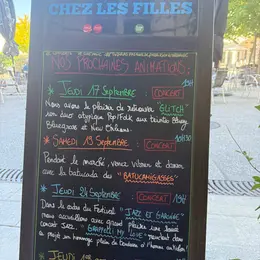 CHEZ LES FILLES
NOS PROCHAINES ANIMATIONS:
* JEUDI 17 SEPTEMBRE : CONCERT 19H
Nous avons le plaisir de retrouver "GLITCH"
son duo atypique Pop/Folk aux teintes Bluesy
Bluegrass et New Orleans.
* SAMEDI 19 SEPTEMBRE : CONCERT 10H30
Pendant le marché, venez vibrer et danser
avec la batucada des "BATUCAMIGASSES"
* JEUDI 24 SEPTEMBRE : CONCERT 19H
Dans le cadre du Festival "JAZZ ET GARONNE"
nous accueillons avec grand plaisir une soirée
concert JAZZ. "GRAPPELLI MY LOVE"
projet son hommage plein de tendresse
* JEUDI 1ER